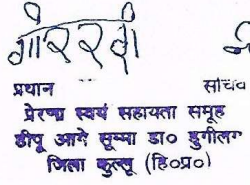 प्रधान सचिव
प्रेरणा स्वयं सहायता समूह
डीपू आगे सूम्मा डा० डुगीलग
जिला कुल्लू (हि०प्र०)